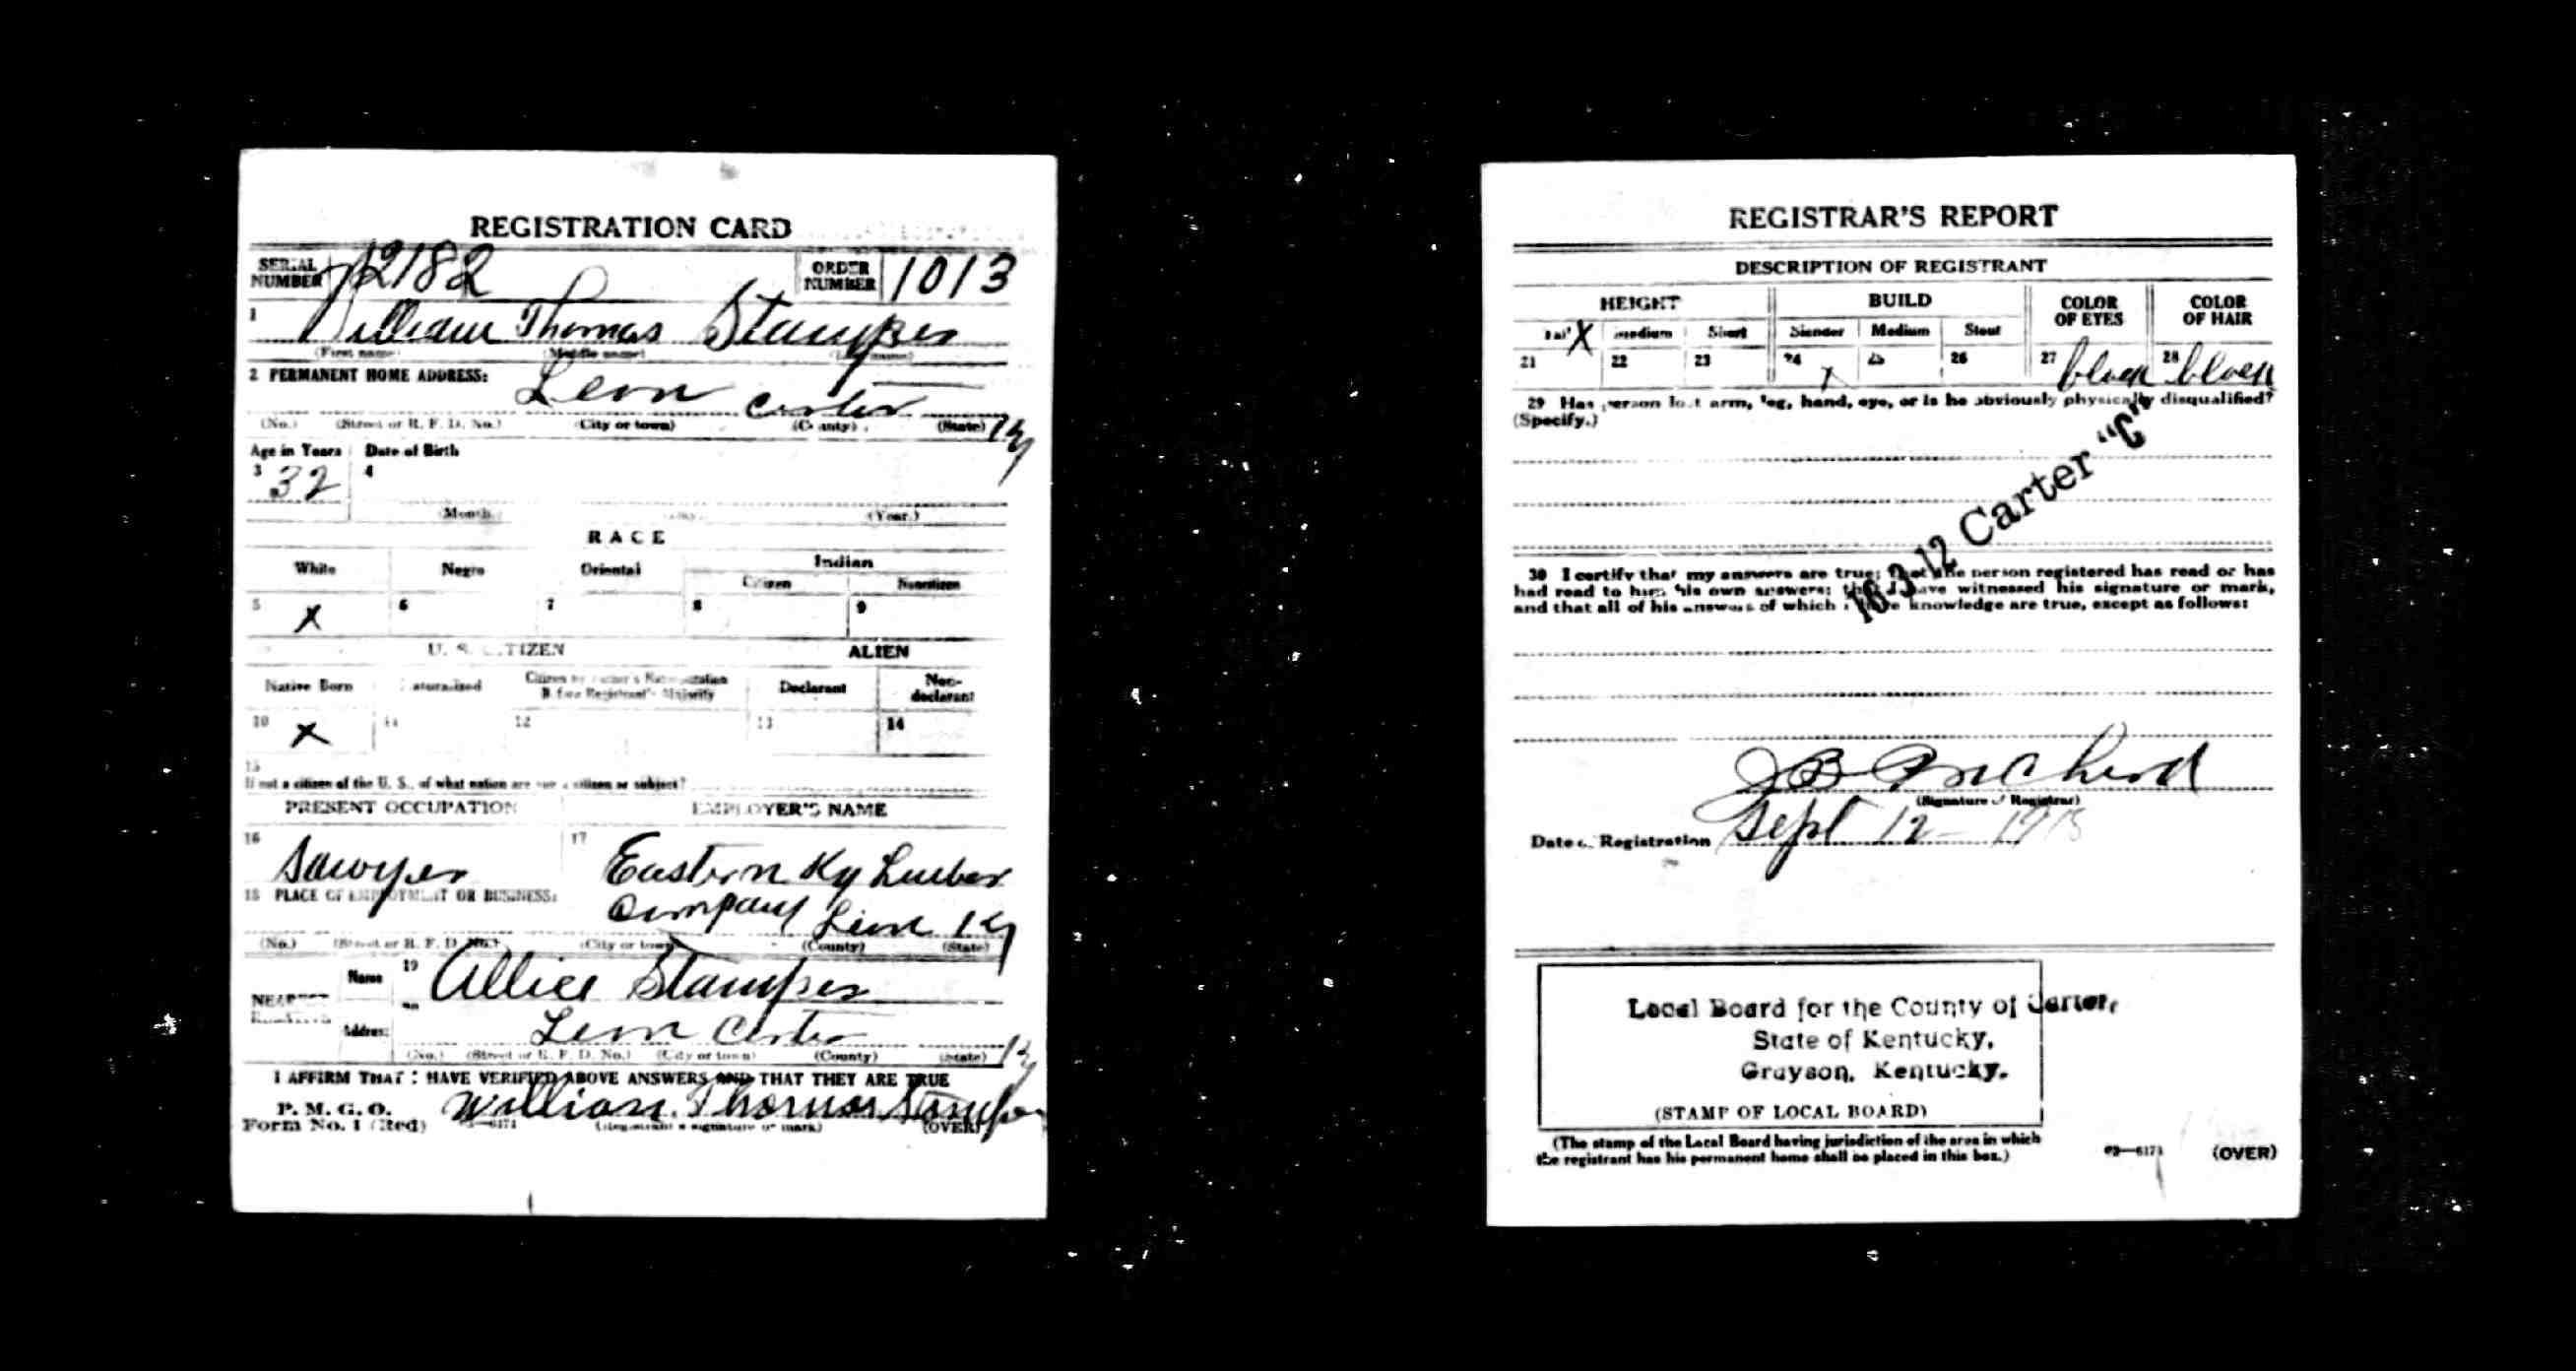 REGISTRATION CARD
SERIAL NUMBER 2182 ORDER NUMBER 1013
1 William Thomas Stamper
(First name) (Middle name) (Last name)
2 PERMANENT HOME ADDRESS: Leon Carter Ky
(No.) (Street or R. F. D. No.) (City or town) (County) (State)
Age in Years Date of Birth
3 32 4
(Month) (Year.)
RACE
White Negro Oriental Indian
Citizen Noncitizen
5 X 6 7 8 9
U. S. CITIZEN ALIEN
Native Born Naturalized Citizen by Father's Naturalization Before Registrant's Majority Declarant Non-declarant
10 X 11 12 13 14
15
If not a citizen of the U. S., of what nation are you a citizen or subject?
PRESENT OCCUPATION EMPLOYER'S NAME
16 Sawyer 17 Eastern Ky Lumber
18 PLACE OF EMPLOYMENT OR BUSINESS: Company Leon Ky
(No.) (Street or R. F. D. No.) (City or town) (County) (State)
NEAREST RELATIVE Name 19 Allice Stamper
Address 20 Leon Carter Ky
(No.) (Street or R. F. D. No.) (City or town) (County) (State)
I AFFIRM THAT I HAVE VERIFIED ABOVE ANSWERS AND THAT THEY ARE TRUE
P. M. G. O.
Form No. 1 (Red) William Thomas Stamper
03—6171 (Registrant's signature or mark) (OVER)
REGISTRAR'S REPORT
DESCRIPTION OF REGISTRANT
HEIGHT BUILD COLOR OF EYES COLOR OF HAIR
Tall X Medium Short Slender Medium Stout
21 22 23 24 X 25 26 27 black 28 black
29 Has person lost arm, leg, hand, eye, or is he obviously physically disqualified?
(Specify.)
16 3 12 Carter "C"
30 I certify that my answers are true; that the person registered has read or has
had read to him his own answers; that I have witnessed his signature or mark,
and that all of his answers of which I have knowledge are true, except as follows:
J B
(Signature of Registrar)
Date of Registration Sept 12 - 1918
Local Board for the County of Carter,
State of Kentucky.
Grayson, Kentucky.
(STAMP OF LOCAL BOARD)
(The stamp of the Local Board having jurisdiction of the area in which
the registrant has his permanent home shall be placed in this box.)
03—6171 (OVER)